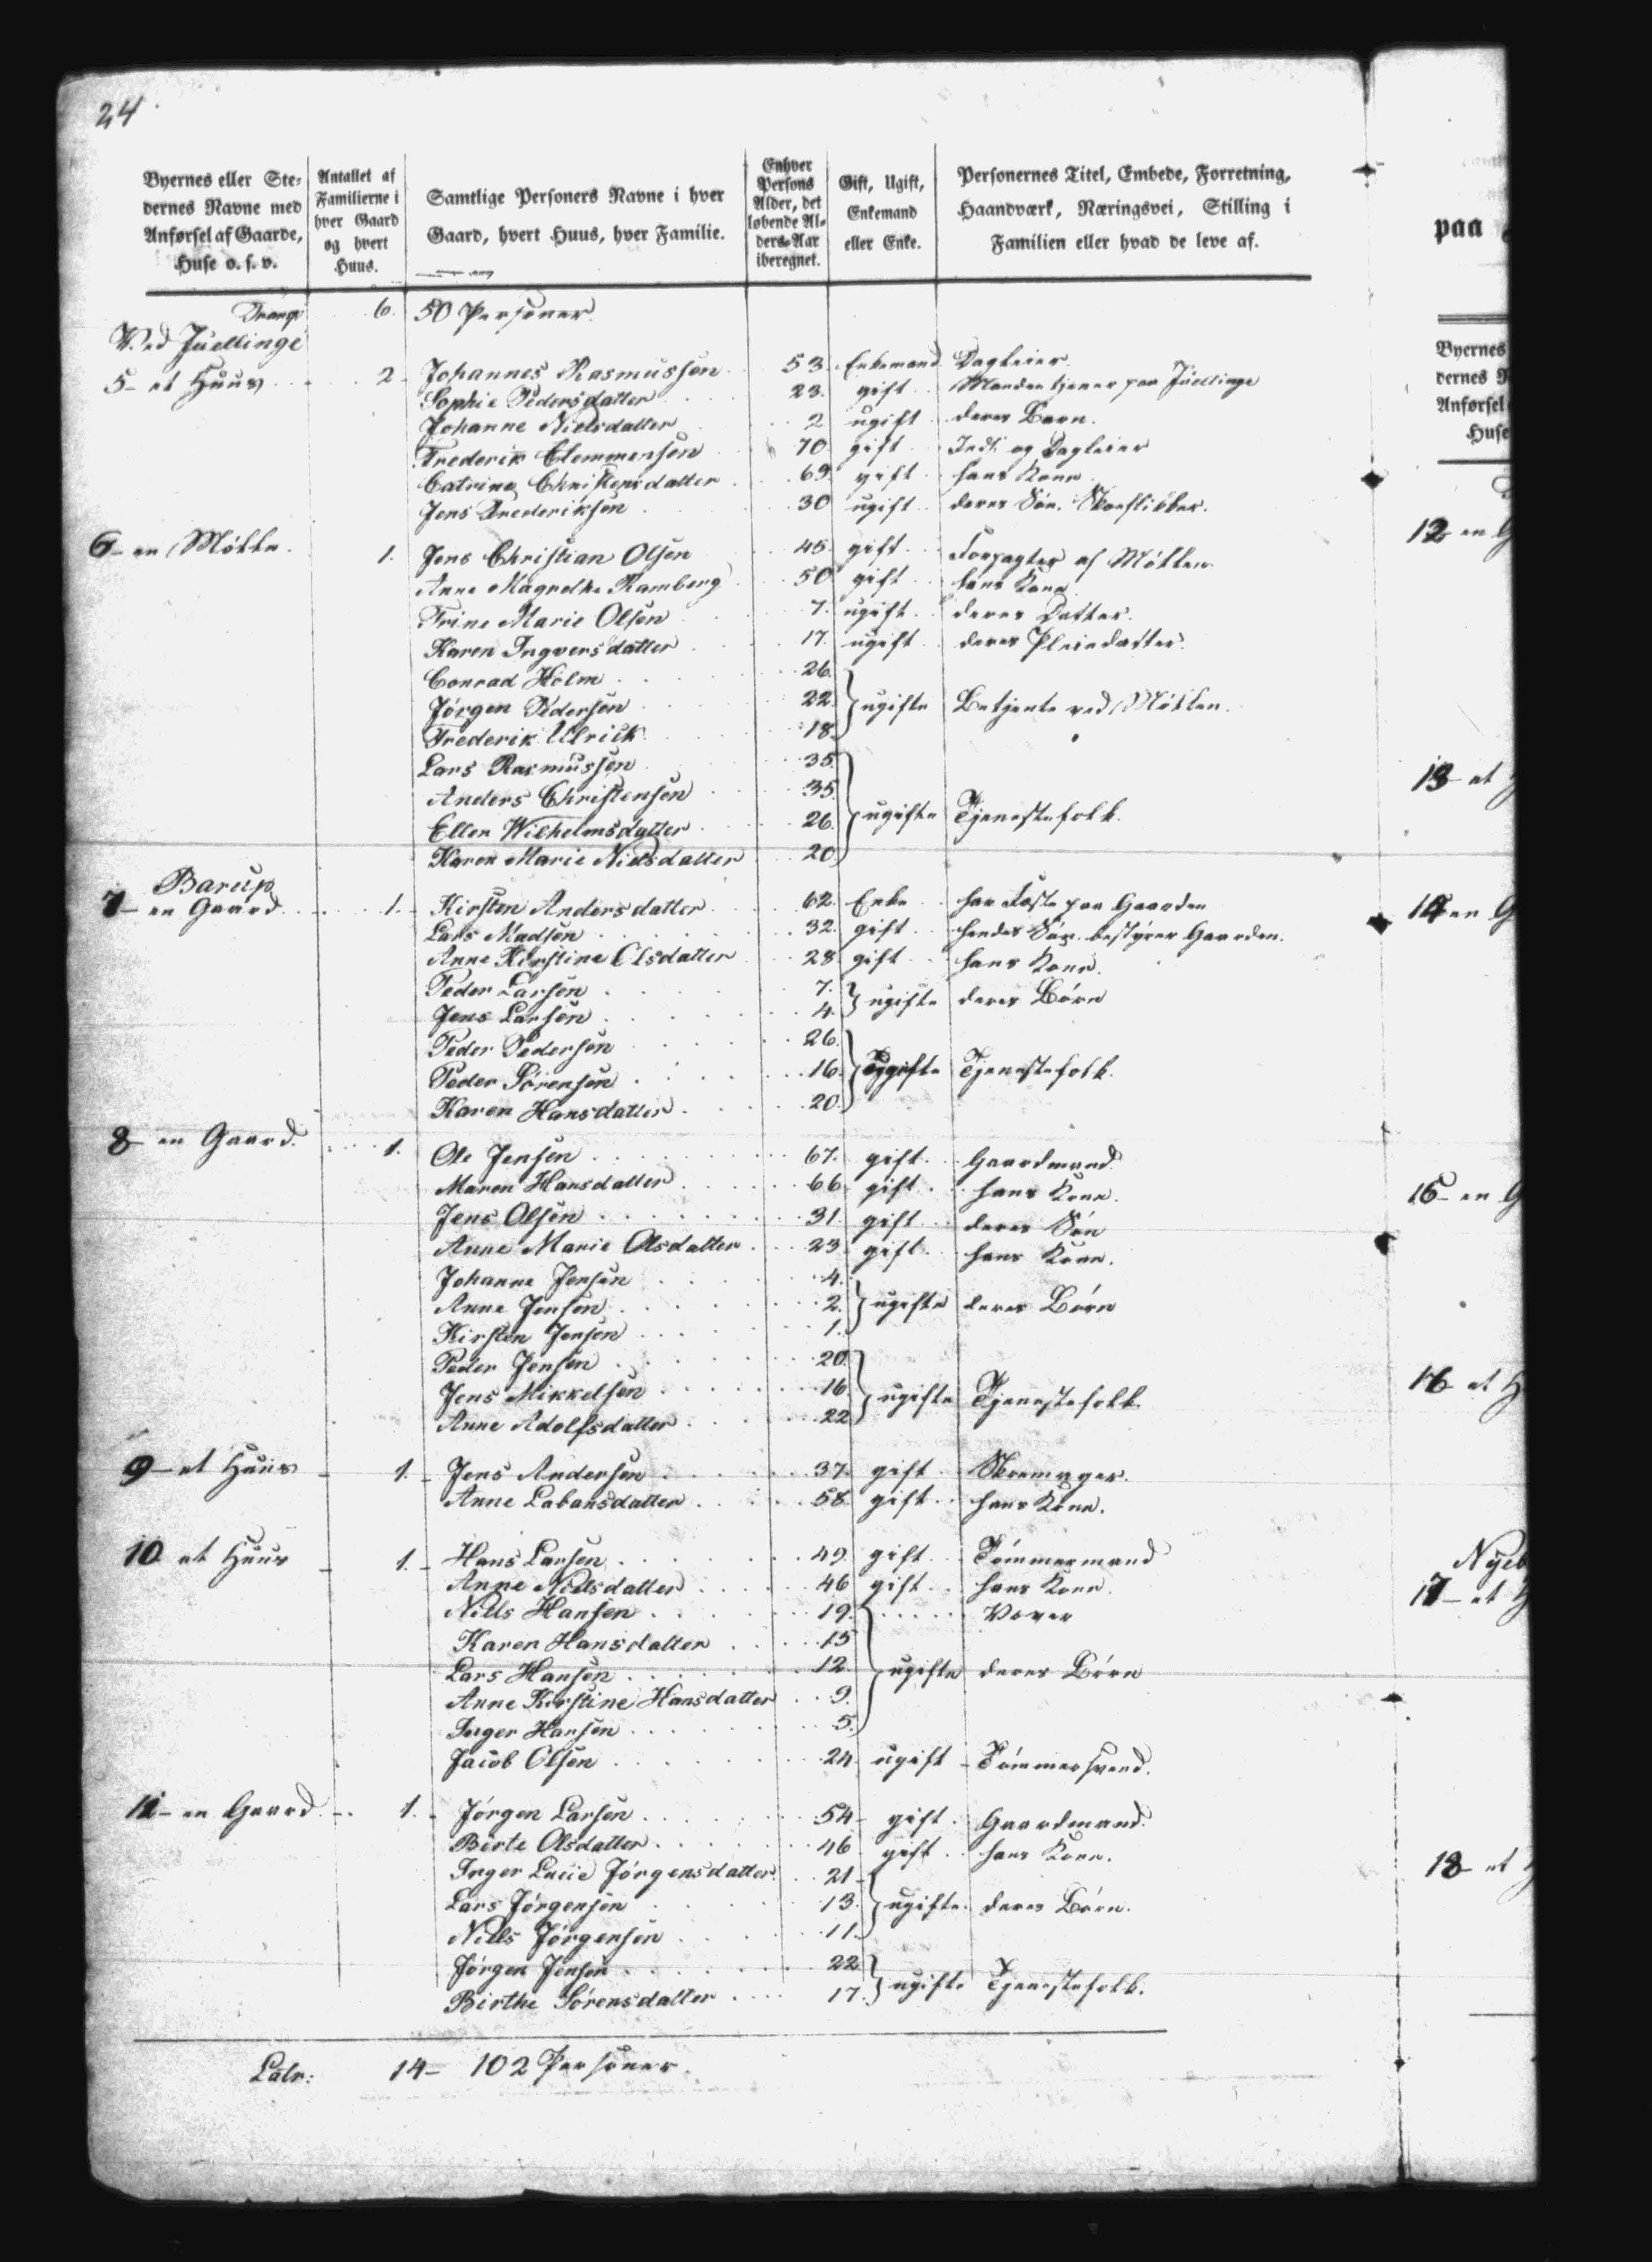 24
Byernes eller Ste-
dernes Navne med
Anførsel af Gaarde,
Huse o. s. v.
Antallet af
Familierne i
hver Gaard
og hvert
Huus.
Samtlige Personers Navne i hver
Gaard, hvert Huus, hver Familie.
Enhver
Persons
Alder, det
løbende Al-
ders-Aar
iberegnet.
Gift, Ugift,
Enkemand
eller Enke.
Personernes Titel, Embede, Forretning,
Haandværk, Næringsvei, Stilling i
Familien eller hvad de leve af.
Transp 6. 50 Personer.
Ved Juellinge
5- et Huus 2- Johannes Rasmussen 53 Enkemand Dagleier
Sophie Pedersdatter 23. gift Manden tjener paa Juellinge
Johanne Nielsdatter 2 ugift deres Barn.
Frederik Clemmensen 70 gift Inds. og Dagleier
Catrine Christensdatter 69. gift hans Kone
Jens Frederiksen 30 ugift deres Søn. Skoeflikker.
6- en Mølle. 1. Jens Christian Olsen 45. gift Forpagter af Møllen
Anne Magrethe Ramberg 50 gift hans Kone
Trine Marie Olsen 7. ugift deres Datter.
Karen Ingversdatter 17. ugift deres Pleiedatter.
Conrad Holm 26.
Jørgen Pedersen 22. ugifte Betjente ved Møllen.
Frederik Ulrick 18.
Lars Rasmussen 35.
Anders Christensen 35.
Ellen Wilhelmsdatter 26. ugifte Tjenestefolk.
Karen Marie Nielsdatter 20.
Barup
7- en Gaard 1. Kirsten Andersdatter 62. Enke har Fæste paa Gaarden
Lars Madsen 32. gift hendes Søn. bestyrer Gaarden.
Anne Kirstine Olsdatter 28 gift hans Kone.
Peder Larsen 7. ugifte deres Børn
Jens Larsen 4.
Peder Pedersen 26.
Peder Sørensen 16. ugifte Tjenestefolk.
Karen Hansdatter 20.
8- en Gaard. 1. Ole Jensen 67. gift Gaardmand
Maren Hansdatter 66 gift hans Kone.
Jens Olsen 31. gift deres Søn
Anne Marie Olsdatter 23. gift hans Kone.
Johanne Jensen 4.
Anne Jensen 2. ugifte deres Børn
Kirsten Jensen 1.
Peder Jensen 20.
Jens Mikkelsen 16. ugifte Tjenestefolk.
Anne Adolfsdatter 22
9- et Huus 1. Jens Andersen 37. gift Skomager.
Anne Labansdatter 58. gift hans Kone.
10 et Huus 1. Hans Larsen 49. gift Tømmermand
Anne Nielsdatter 46 gift hans Kone.
Niels Hansen 19. Væver
Karen Hansdatter 15
Lars Hansen 12. ugifte deres Børn
Anne Kirstine Hansdatter 9.
Inger Hansen 5.
Jacob Olsen 24 ugift Tømmersvend.
11- en Gaard 1. Jørgen Larsen 54 gift Gaardmand.
Birte Olsdatter 46 gift hans Kone.
Inger Lucie Jørgensdatter 21
Lars Jørgensen 13. ugifte deres Børn.
Niels Jørgensen 11.
Jørgen Jensen 22
Birthe Sørensdatter 17. ugifte Tjenestefolk.
Latr: 14- 102 Personer.
paa
Byernes
dernes
Anførsel
Huse
12 en G
13- et
14 en G
15- en G
16- et H
Nyeb
17- et H
18 et